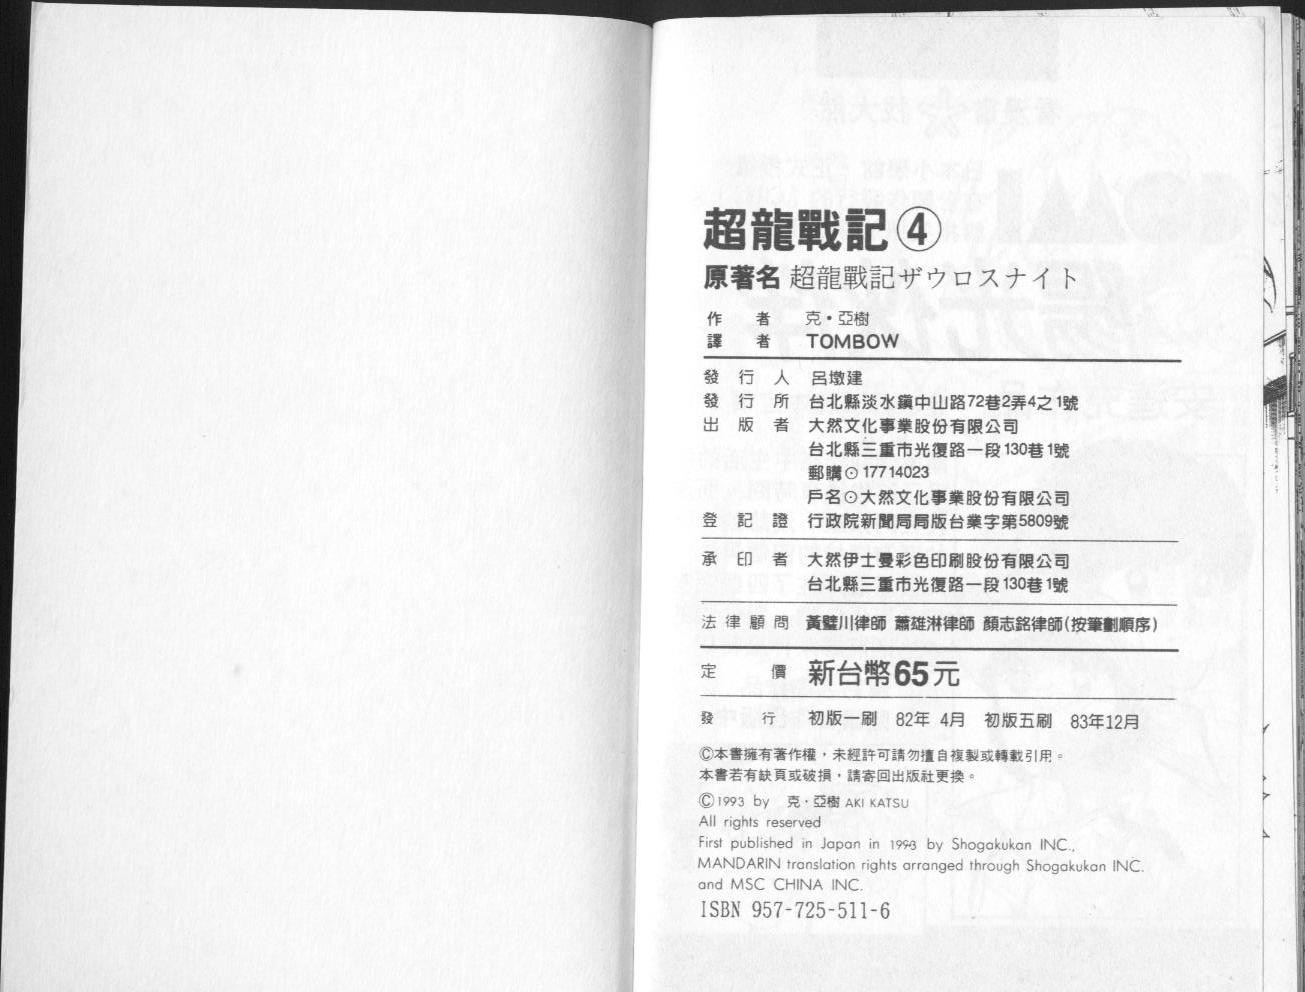 超龍戰記④
原著名 超龍戰記ザウロスナイト
作者 克・亞樹
譯者 TOMBOW
發行人 呂墩建
發行所 台北縣淡水鎭中山路72巷2弄4之1號
出版者 大然文化事業股份有限公司
台北縣三重市光復路一段130巷1號
郵購⊙17714023
戶名⊙大然文化事業股份有限公司
登記證 行政院新聞局局版台業字第5809號
承印者 大然伊士曼彩色印刷股份有限公司
台北縣三重市光復路一段130巷1號
法律顧問 黃璧川律師 蕭雄淋律師 顏志銘律師(按筆劃順序)
定價 新台幣65元
發行 初版一刷 82年 4月 初版五刷 83年12月
©本書擁有著作權，未經許可請勿擅自複製或轉載引用。
本書若有缺頁或破損，請寄回出版社更換。
©1993 by 克・亞樹 AKI KATSU
All rights reserved
First published in Japan in 1993 by Shogakukan INC.,
MANDARIN translation rights arranged through Shogakukan INC.
and MSC CHINA INC.
ISBN 957-725-511-6